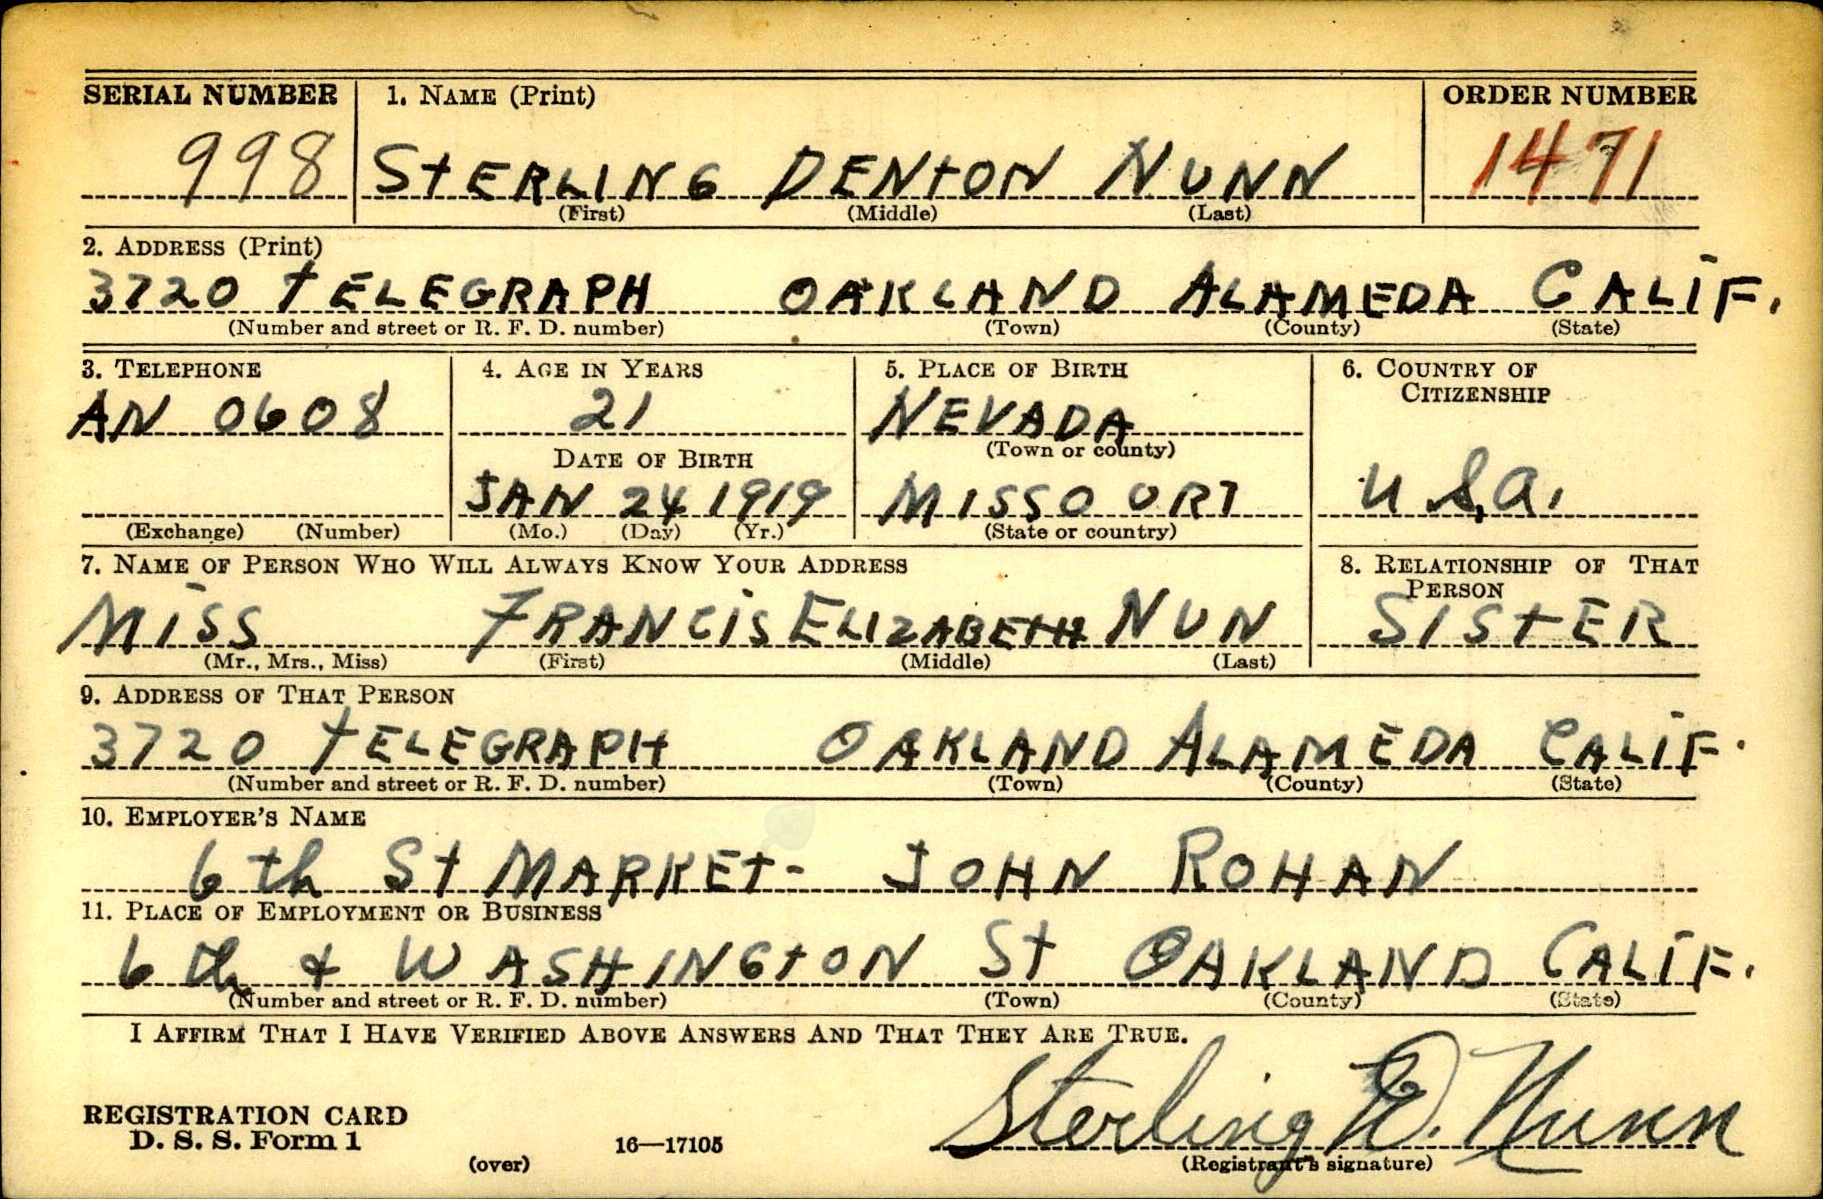 SERIAL NUMBER 1. NAME (Print) ORDER NUMBER
998 STERLING DENTON NUNN 1471
(First) (Middle) (Last)
2. ADDRESS (Print)
3720 TELEGRAPH OAKLAND ALAMEDA CALIF.
(Number and street or R. F. D. number) (Town) (County) (State)
3. TELEPHONE 4. AGE IN YEARS 5. PLACE OF BIRTH 6. COUNTRY OF
CITIZENSHIP
AN 0608 21 NEVADA
(Town or county)
DATE OF BIRTH
JAN 24 1919 MISSOURI U.S.A.
(Exchange) (Number) (Mo.) (Day) (Yr.) (State or country)
7. NAME OF PERSON WHO WILL ALWAYS KNOW YOUR ADDRESS 8. RELATIONSHIP OF THAT
PERSON
MISS FRANCIS ELIZABETH NUN SISTER
(Mr., Mrs., Miss) (First) (Middle) (Last)
9. ADDRESS OF THAT PERSON
3720 TELEGRAPH OAKLAND ALAMEDA CALIF.
(Number and street or R. F. D. number) (Town) (County) (State)
10. EMPLOYER'S NAME
6th St MARKET - JOHN ROHAN
11. PLACE OF EMPLOYMENT OR BUSINESS
6th & WASHINGTON St OAKLAND CALIF.
(Number and street or R. F. D. number) (Town) (County) (State)
I AFFIRM THAT I HAVE VERIFIED ABOVE ANSWERS AND THAT THEY ARE TRUE.
Sterling D. Nunn
REGISTRATION CARD
D. S. S. Form 1 16—17105
(over) (Registrant's signature)